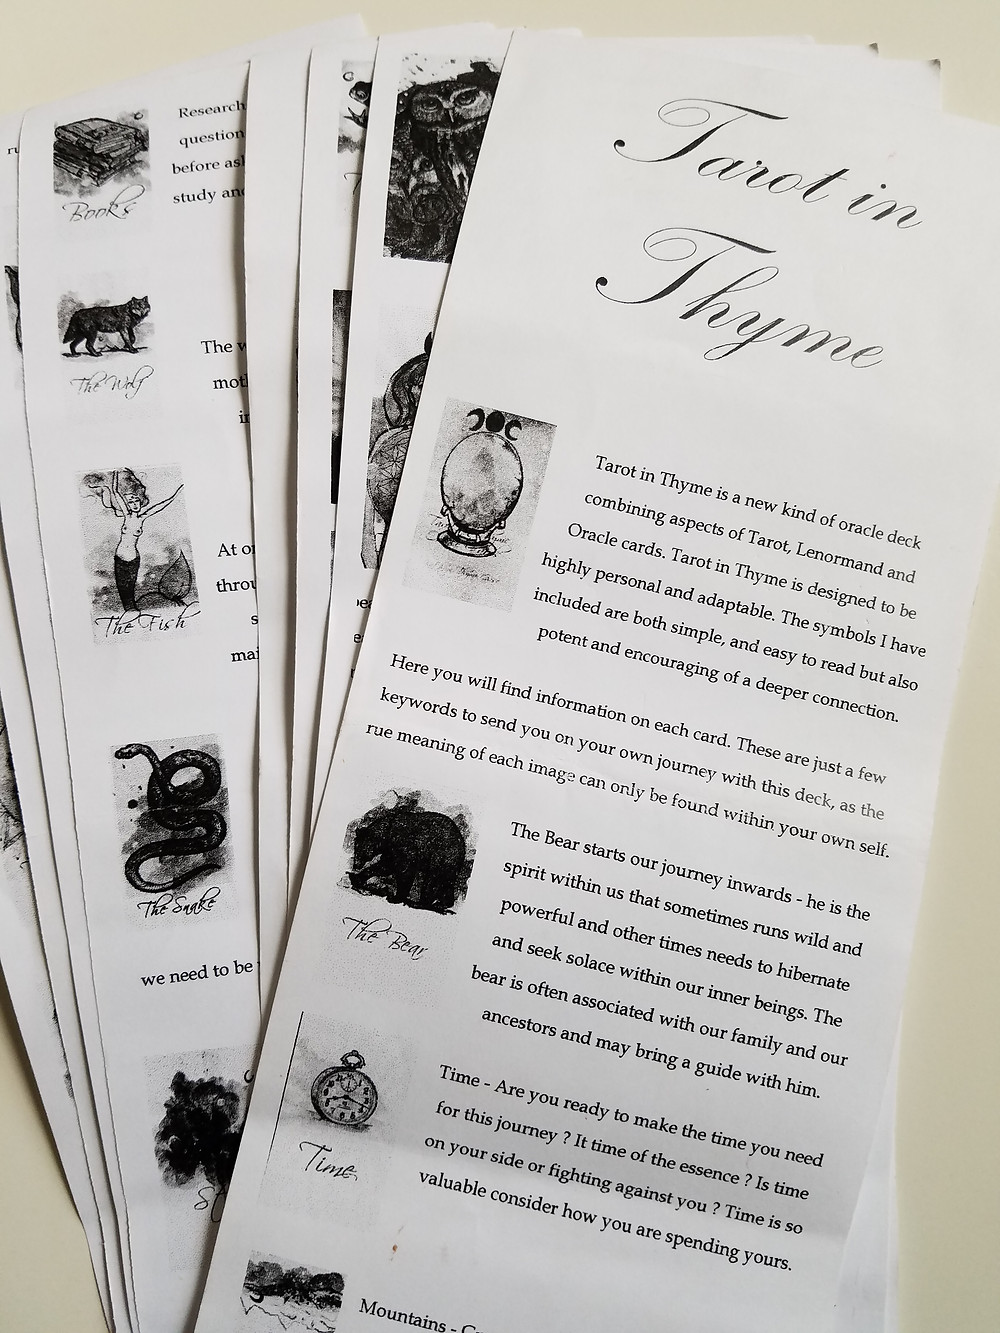 Tarot in
Thyme
Tarot in Thyme is a new kind of oracle deck
combining aspects of Tarot, Lenormand and
Oracle cards. Tarot in Thyme is designed to be
highly personal and adaptable. The symbols I have
included are both simple, and easy to read but also
potent and encouraging of a deeper connection.
Here you will find information on each card. These are just a few
keywords to send you on your own journey with this deck, as the
rue meaning of each image can only be found within your own self.
The Bear
The Bear starts our journey inwards - he is the
spirit within us that sometimes runs wild and
powerful and other times needs to hibernate
and seek solace within our inner beings. The
bear is often associated with our family and our
ancestors and may bring a guide with him.
Time
Time - Are you ready to make the time you need
for this journey ? It time of the essence ? Is time
on your side or fighting against you ? Time is so
valuable consider how you are spending yours.
Mountains -
Books
Research
question
before
study and
The Wolf
The
The Fish
At
The Snake
we need to be